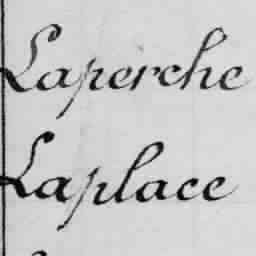 Laperche
Laplace